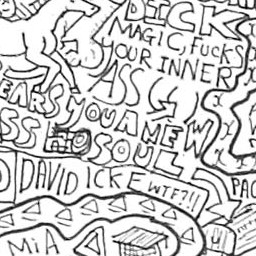 DICK
MAGIC, FUCKS
YOUR INNER
ASS
EARS YOU A NEW
SS SOUL
DAVID ICKE WTF?!!
PAC
MiA